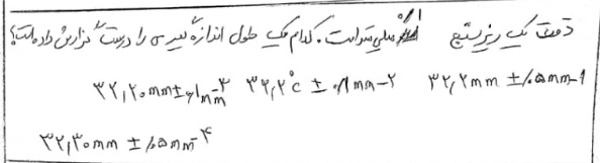 دقت یک ریزسنج ۰/۱ میلی متر است. کدام یک طول اندازه گیری را درست گزارش داده است؟
۱- ۳۲٫۲mm ±۰/۰۵mm ۲- ۳۲٫۲°c ±۰/۱mm ۳- ۳۲٫۲۰mm±۰/۱mm
۴- ۳۲٫۳۰mm ±۰/۰۵mm